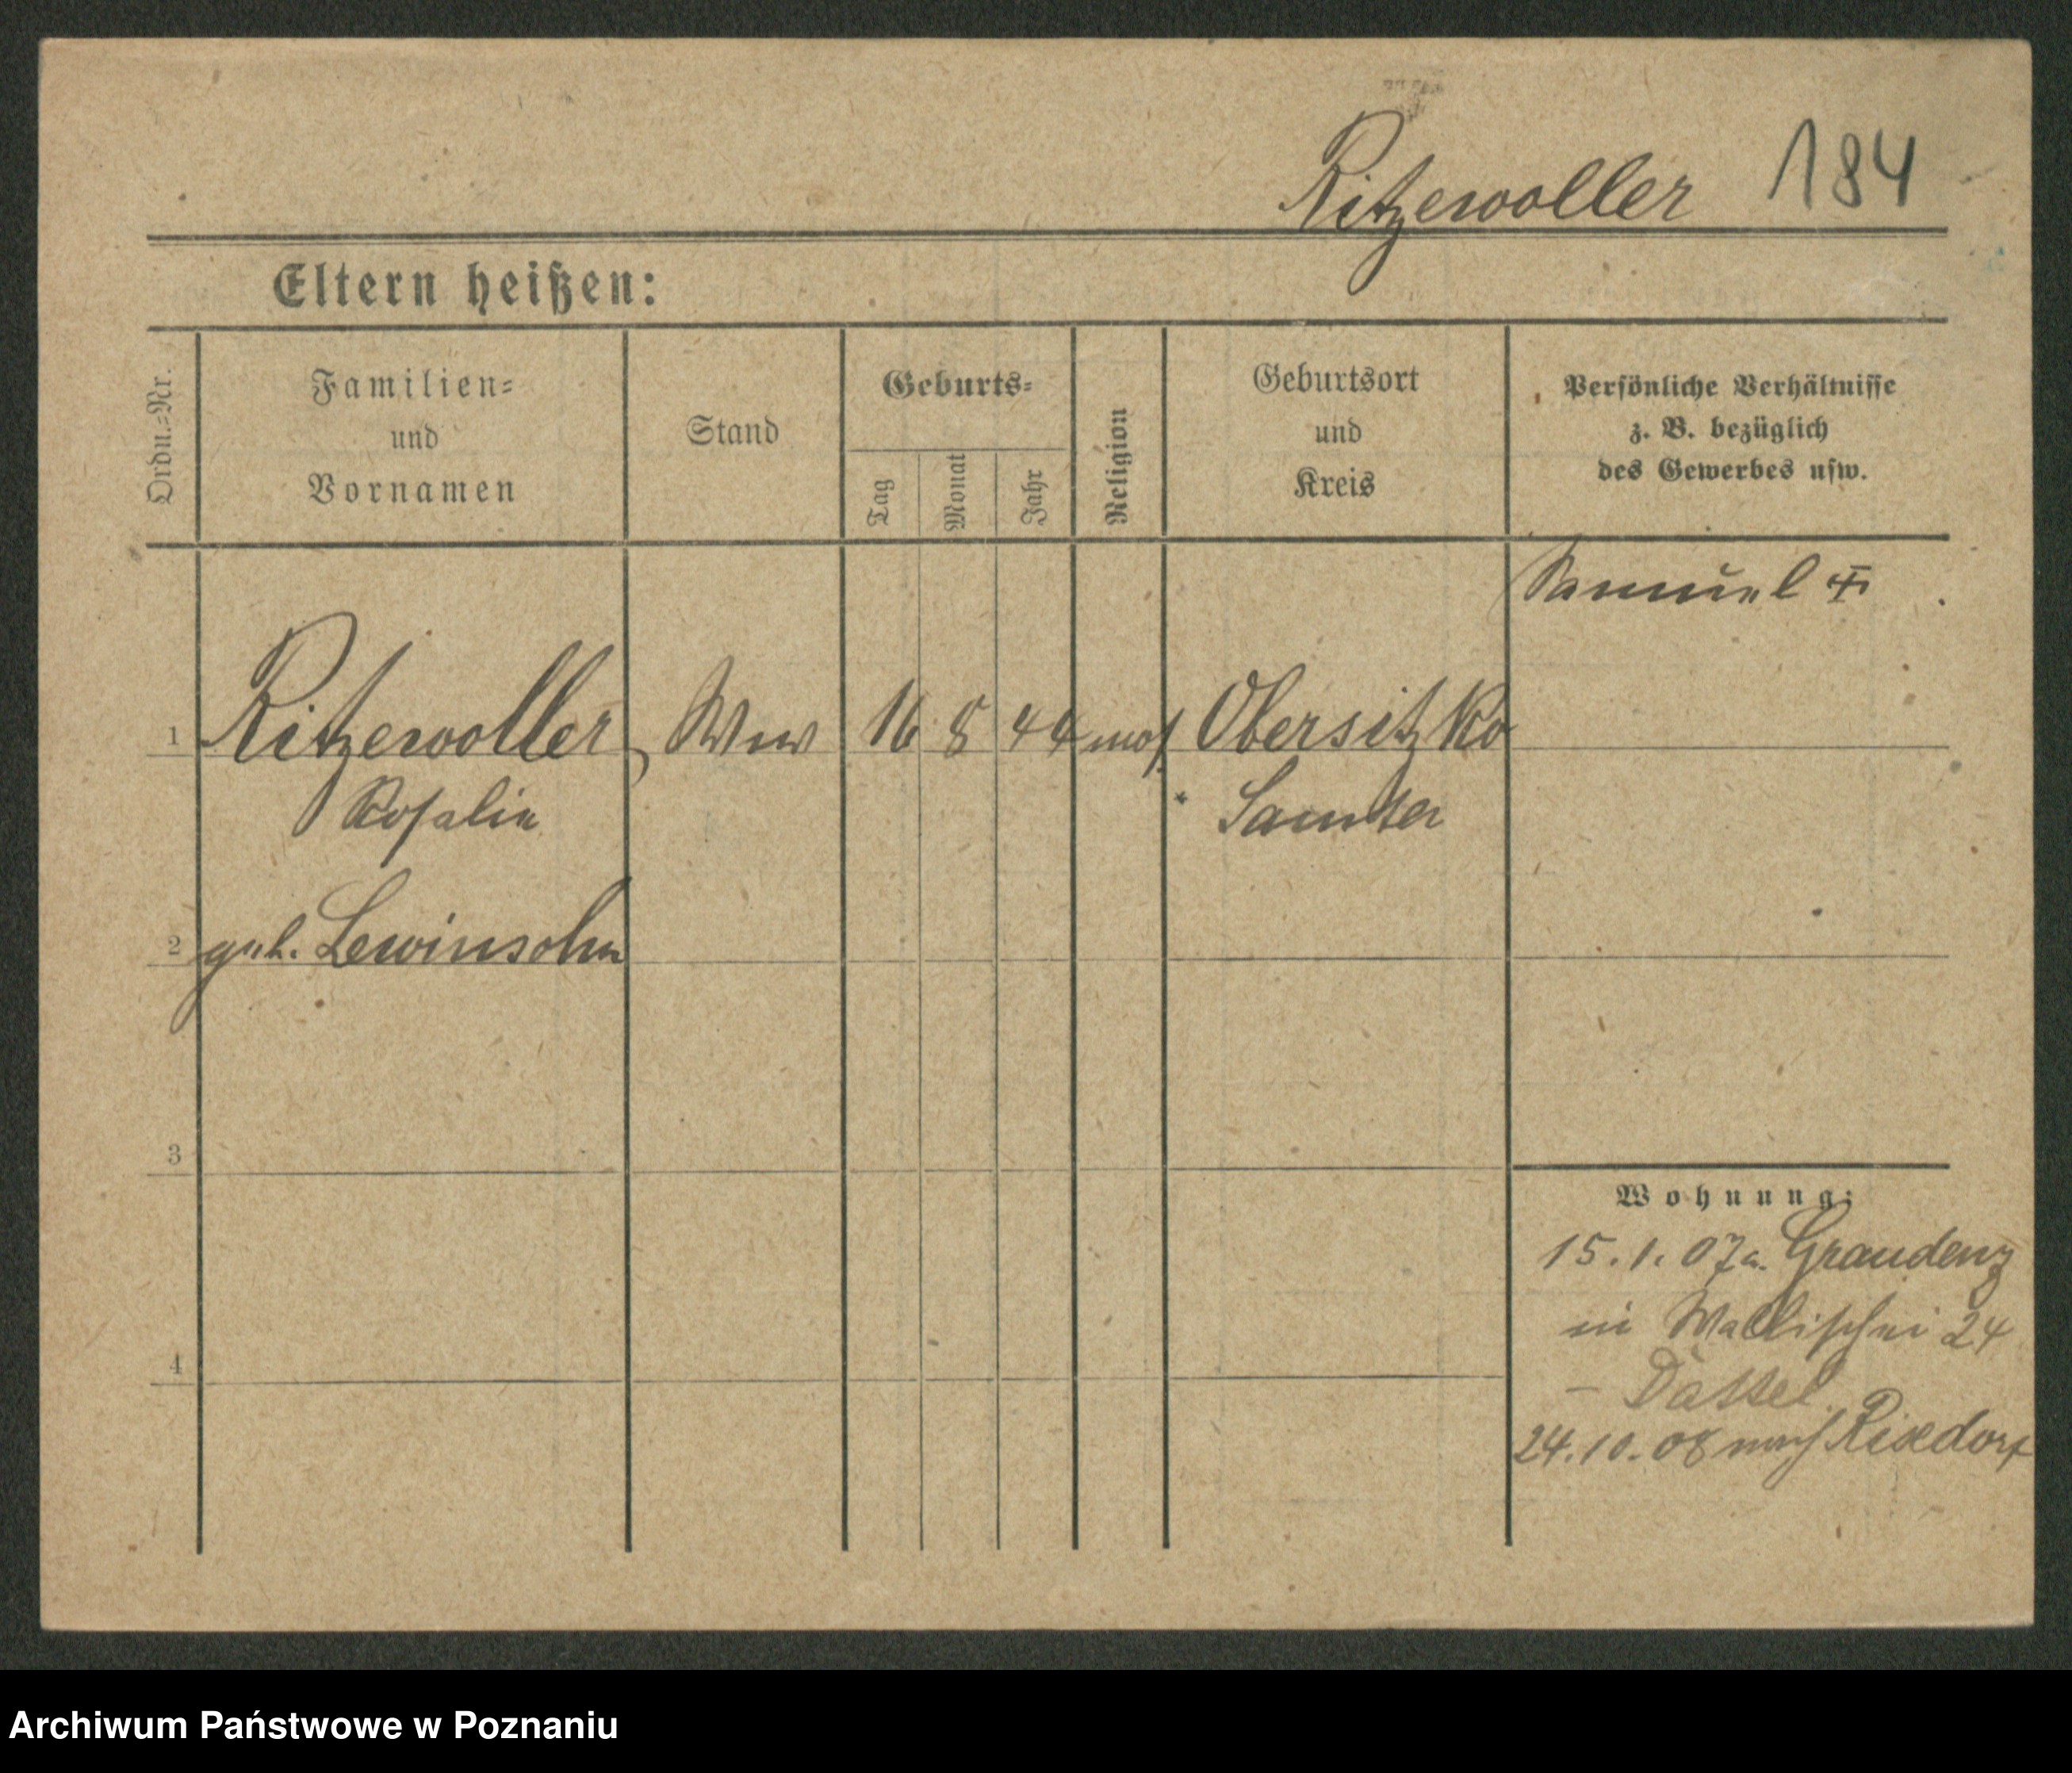 Ritzewoller 184
Eltern heißen:
Ordn.=Nr.
Familien=
und
Vornamen
Stand
Geburts=
Tag
Monat
Jahr
Religion
Geburtsort
und
Kreis
Persönliche Verhältnisse
z. B. bezüglich
des Gewerbes usw.
Samuel
1 Ritzewoller, Wwe 16 8 44 mos. Obersitzko
Rosalie Samter
2 geb. Lewinsohn
3
4
Wohnung:
15.1.07 a. Graudenz
in Wallischei 24
–
24.10.08 nach
Archiwum Państwowe w Poznaniu